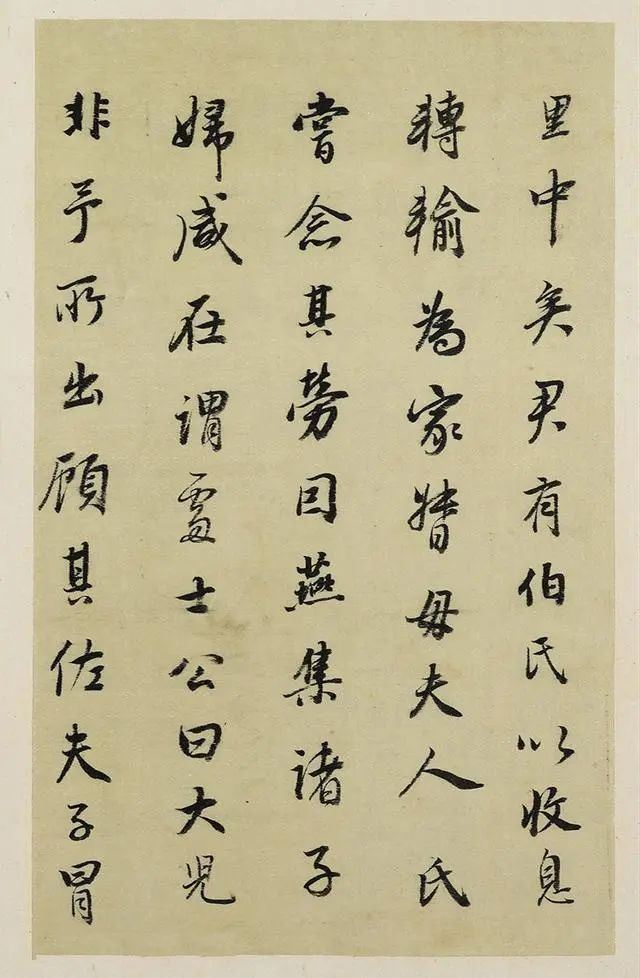 里中矣君有伯氏以收息
轉輸為家督母夫人氏
嘗念其勞因燕集諸子
婦咸在謂處士公曰大兒
非予所出顧其佐夫子冒